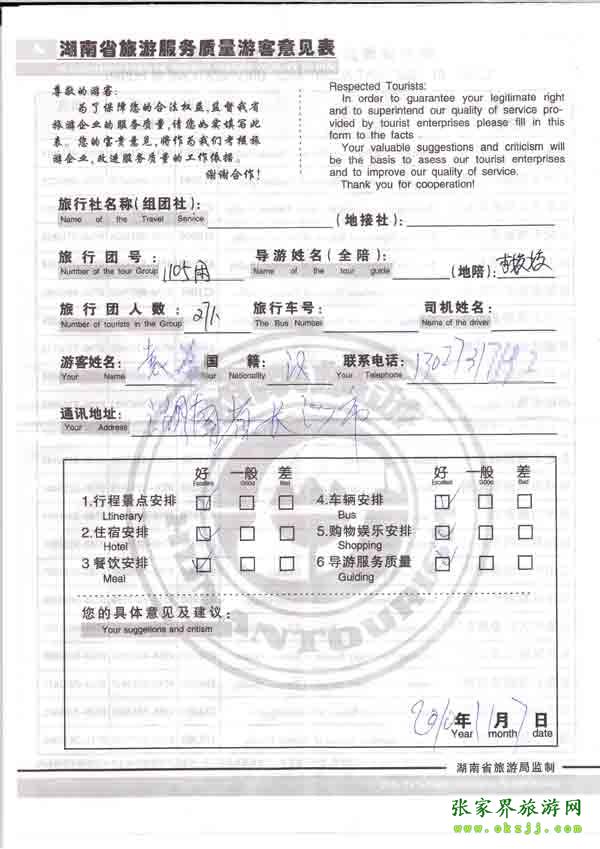 湖南省旅游服务质量游客意见表
尊敬的游客:
为了保障您的合法权益,监督我省
旅游企业的服务质量,请您如实填写此
表。您的宝贵意见,将作为我们考核旅
游企业,改进服务质量的工作依据。
谢谢合作!
Respected Tourists:
In order to guarantee your legitimate right
and to superintend our quality of service pro-
vided by tourist enterprises please fill in this
form to the facts .
Your valuable suggestions and criticism will
be the basis to asess our tourist enterprises
and to improve our quality of service.
Thank you for cooperation!
旅行社名称(组团社): (地接社):
Name of the Travel Service
旅行团号: 1105 导游姓名(全陪) (地陪):
Number of the tour Group Name of the tour guide
旅行团人数: 27人 旅行车号: 司机姓名:
Number of tourists in the Group The Bus Number Name of the driver
游客姓名: 国籍: 汉 联系电话:
Your Name Your Nationality Your Telephone
通讯地址: 湖南省长沙市
Your Address
好 一般 差 好 一般 差
Excellent Good Bad Excellent Good Bad
1.行程景点安排 4.车辆安排
Ltinerary Bus
2.住宿安排 5.购物娱乐安排
Hotel Shopping
3 餐饮安排 6 导游服务质量
Meal Guiding
您的具体意见及建议:
Your suggetions and critism
2010年11月7日
Year month date
湖南省旅游局监制
张家界旅游网
www.okzjj.com